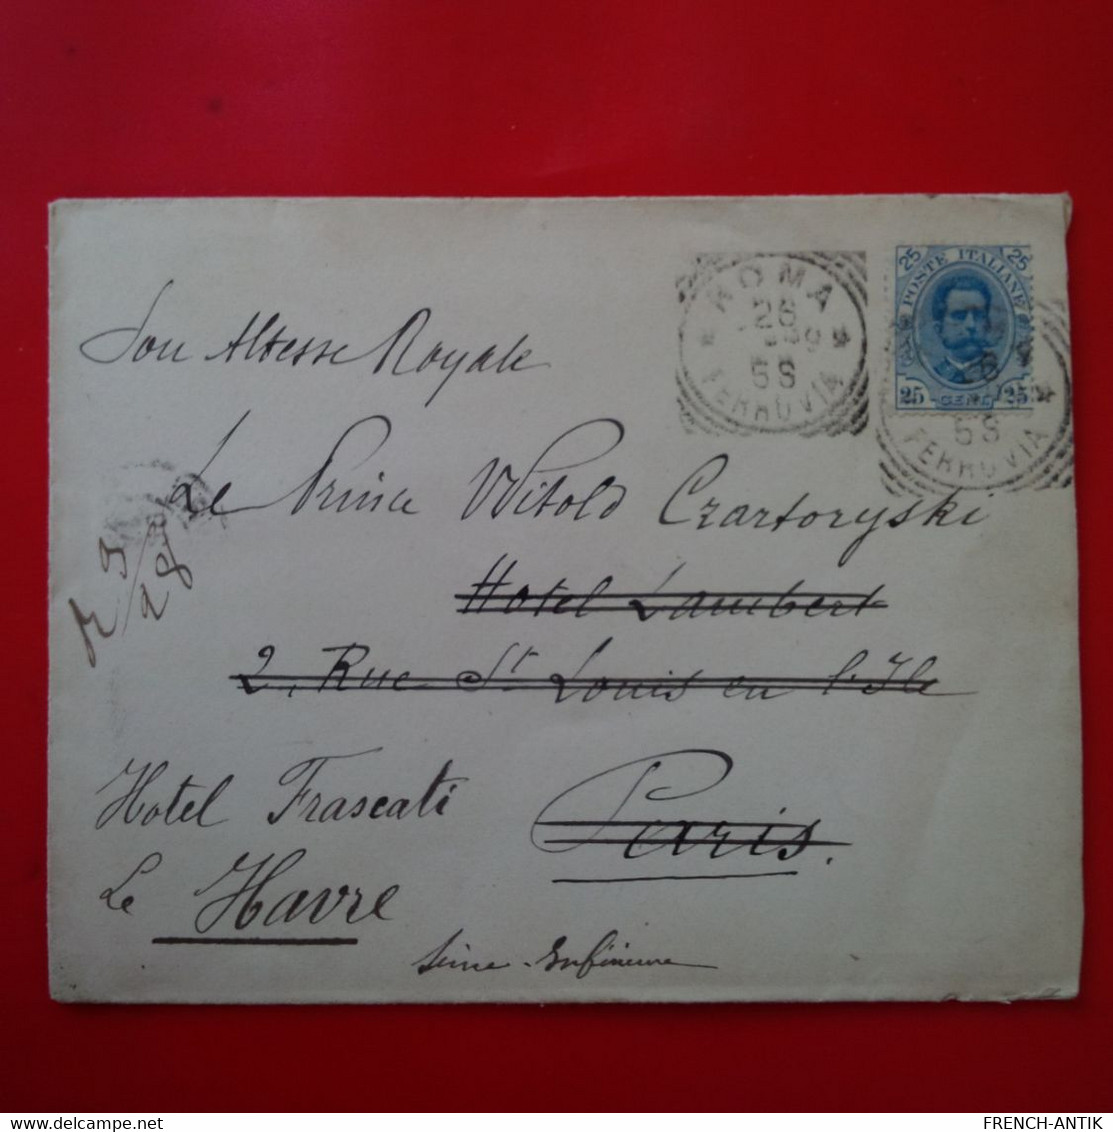 ROMA
26
5S
FERROVIA
25 POSTE ITALIANE 25
25 CENT. 25
26
5S
FERROVIA
Son Altesse Royale
Le Prince Witold Czartoryski
Hotel Lambert
2, Rue St Louis en l'Ile
Paris.
Hotel Frascati
Le Havre
Seine-Inférieure
R 9/28
FRENCH-ANTIK